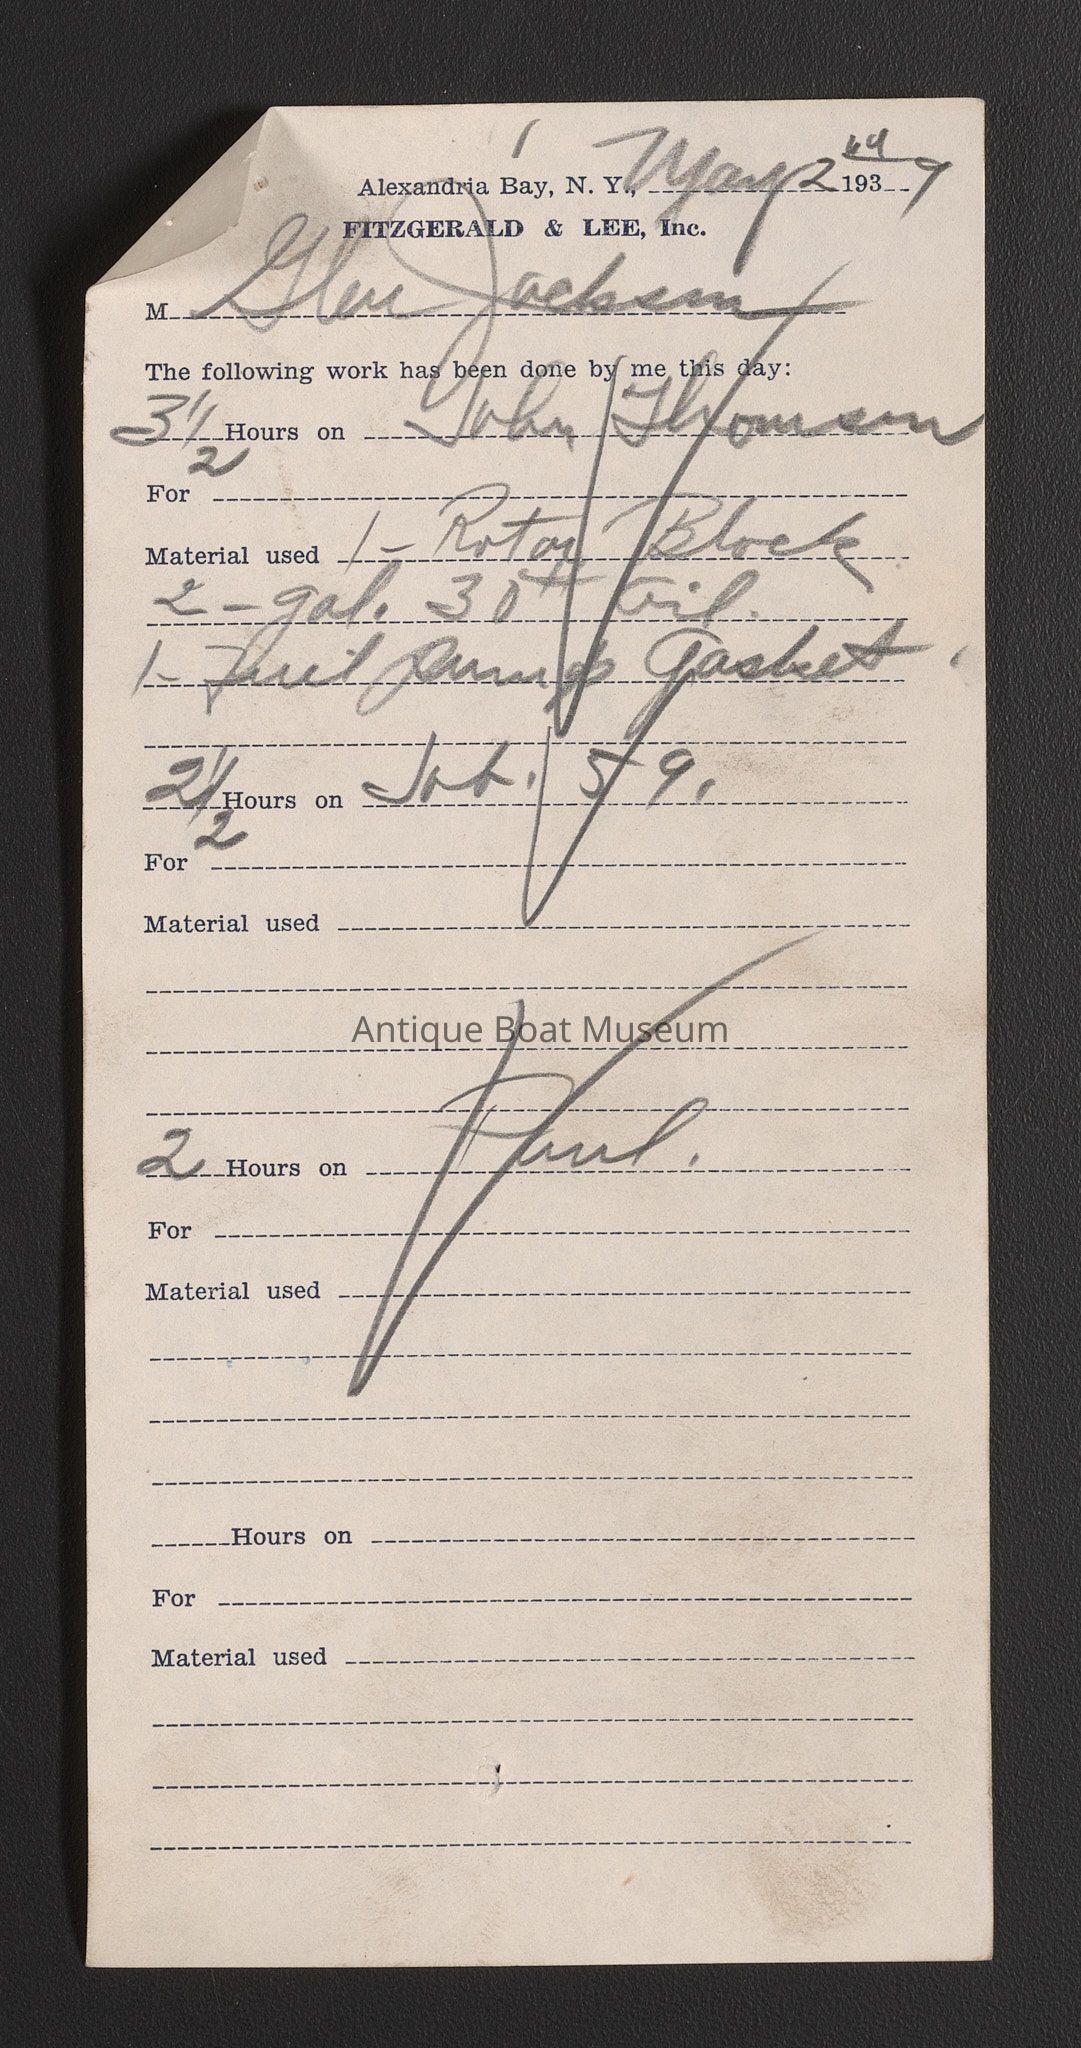 Alexandria Bay, N. Y., May 2 1939
FITZGERALD & LEE, Inc.
M Glen Jackson
The following work has been done by me this day:
3 1/2 Hours on John Thomson
For
Material used 1 - Rotor Block
2 - gal. 30 Oil.
1 - Fuel Pump Gasket.
2 1/2 Hours on Job. 59.
For
Material used
Antique Boat Museum
2 Hours on Paul.
For
Material used
Hours on
For
Material used